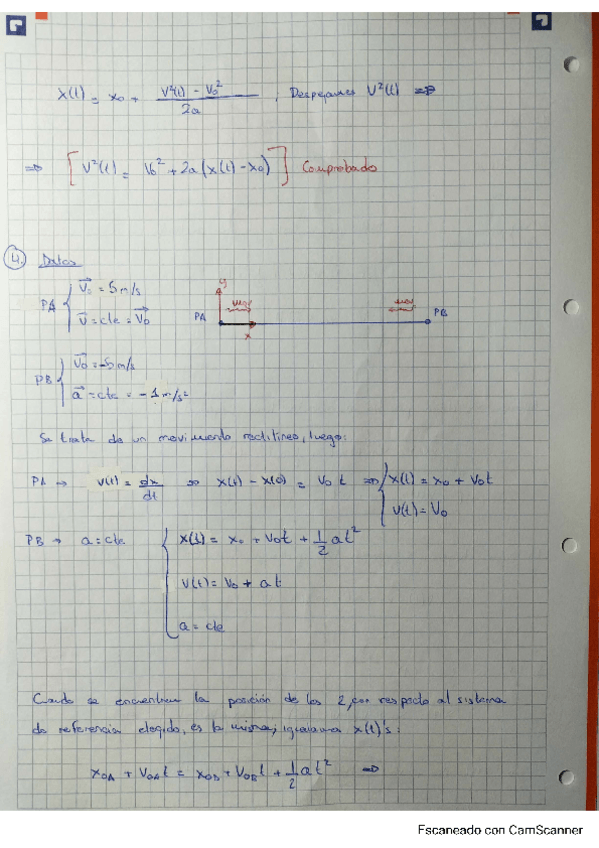 x(t) = x₀ + (v²(t) - v₀²)/2a ; Despejamos v²(t) ⇒
⇒ [v²(t) = v₀² + 2a(x(t) - x₀)] Comprobado
4. Datos
PA { v⃗₀ = 5m/s
v⃗ = cte = v⃗₀
y
PA
x
PB
PB { v⃗₀ = -5m/s
a⃗ = cte = -1m/s²
Se trata de un movimiento rectilíneo, luego:
PA → v(t) = dx/dt ⇒ x(t) - x(0) = v₀ t ⇒ { x(t) = x₀ + v₀t
v(t) = v₀
PB → a = cte { x(t) = x₀ + v₀t + 1/2 at²
v(t) = v₀ + at
a = cte
Cuando se encuentren la posición de los 2, con respecto al sistema
de referencia elegido, es la misma; igualamos x(t)'s:
x₀A + v₀At = x₀B + v₀Bt + 1/2 at² ⇒
Escaneado con CamScanner